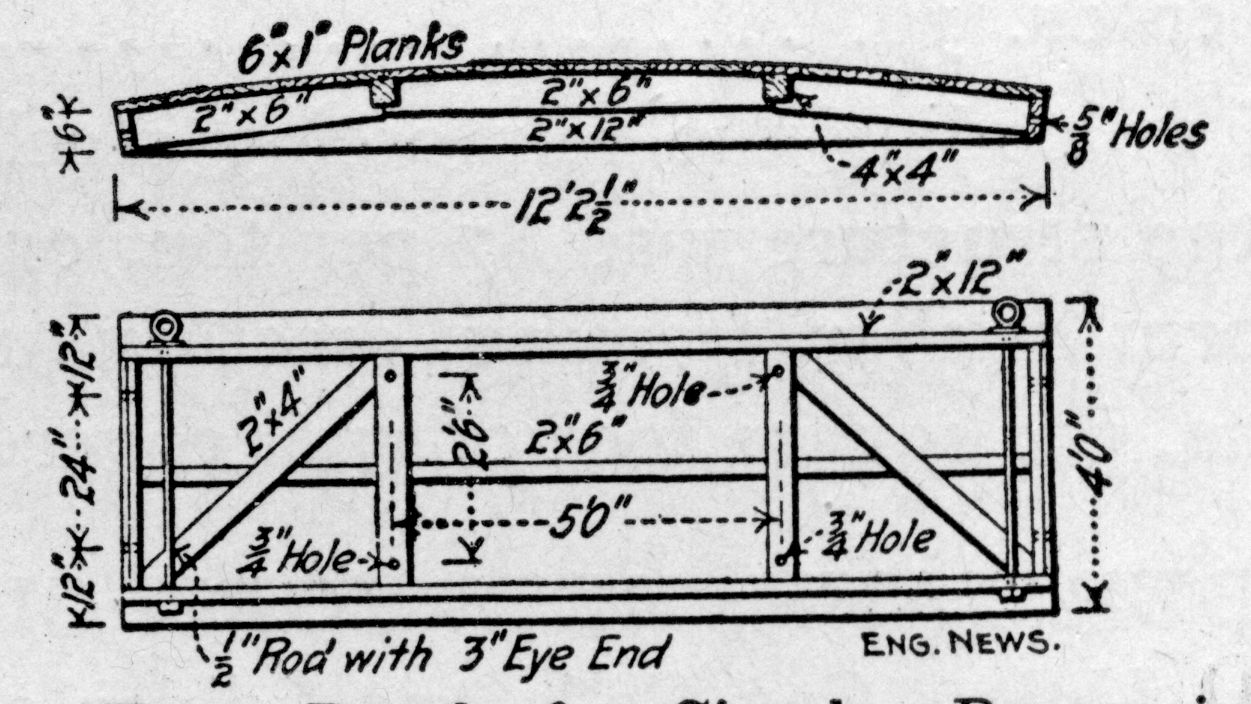 6"x1" Planks
2"x6"
2"x6"
2"x12"
6"
5/8" Holes
4"x4"
12'2 1/2"
2"x12"
12"
24"
12"
2"x4"
3/4" Hole
2'6"
2"x6"
4'0"
5'0"
3/4" Hole
3/4" Hole
1/2" Rod with 3" Eye End
ENG. NEWS.